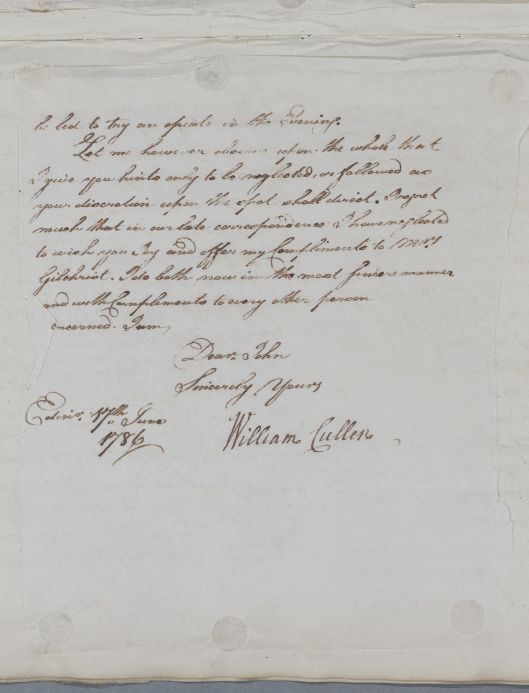 be led to try an opiate in the Evening.
Let me however observe upon the whole that
I give you hints only to be neglected, or followed as
your discretion upon the spot shall direct. I regret
much that in our late correspondence I have neglected
to wish you Joy and offer my Compliments to Mrs
Gilchrist. I do both now in the most sincere manner
and with Compliments to every other person
concerned. I am,
Dear John
Sincerely Yours
Edinr. 17th June
1786
William Cullen